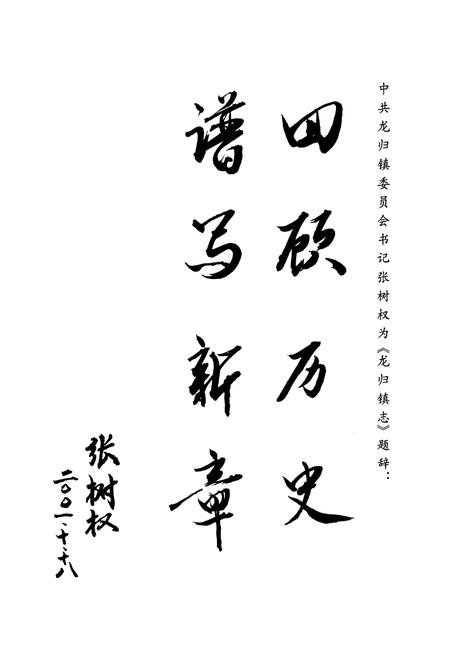 中共龙归镇委员会书记张树权为《龙归镇志》题辞：
回顾历史
谱写新章
张树权
二〇〇一、十、十八